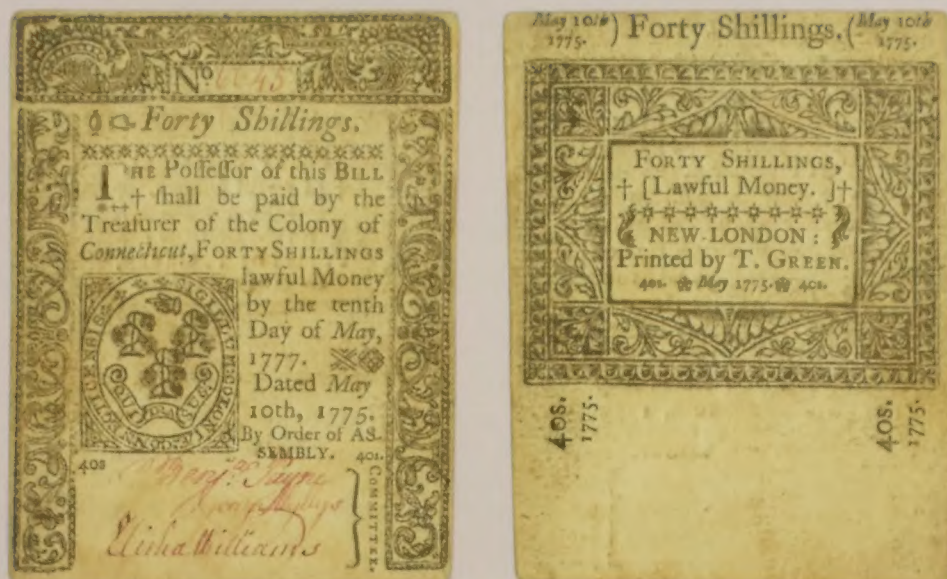 No 45
Forty Shillings.
THE Possessor of this BILL
shall be paid by the
Treasurer of the Colony of
Connecticut, FORTY SHILLINGS
lawful Money
by the tenth
Day of May,
1777.
Dated May
10th, 1775.
By Order of AS-
SEMBLY.
40s 40s.
SIGILLUM COLONIÆ CONNECTICENSIS
QUI TRA SUS
Benj.n Payne
Elisha Williams
COMMITTEE.
May 10th 1775. ) Forty Shillings. ( May 10th 1775.
FORTY SHILLINGS,
† [Lawful Money. ]†
NEW-LONDON:
Printed by T. GREEN.
40s. May 1775. 40s.
40S.
1775.
40S.
1775.